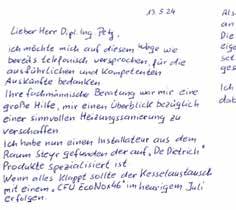 13.5.24
Lieber Herr Dipl. Ing
ich möchte mich auf diesem Wege wie
bereits telefonisch versprochen, für die
ausführlichen und kompetenten
Auskünfte bedanken
Ihre fachmännische Beratung war mir eine
große Hilfe, mir einen Überblick bezüglich
einer sinnvollen Heizungssanierung zu
verschaffen
Ich habe nun einen Installateur aus dem
Raum Steyr gefunden der auf „De Dietrich"
Produkte spezialisiert ist
Wenn alles klappt sollte der Kesselaustausch
mit einem „CFU EcoNox46" im heurigem Juli
erfolgen.
Als
an
Die
eige
set
ges
Ich
da